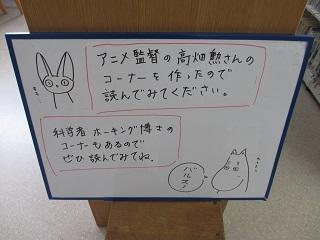 アニメ監督の高畑勲さんの
コーナーを作ったので
読んでみてください。
科学者ホーキング博士の
コーナーもあるので
ぜひ読んでみてね。
バルス!